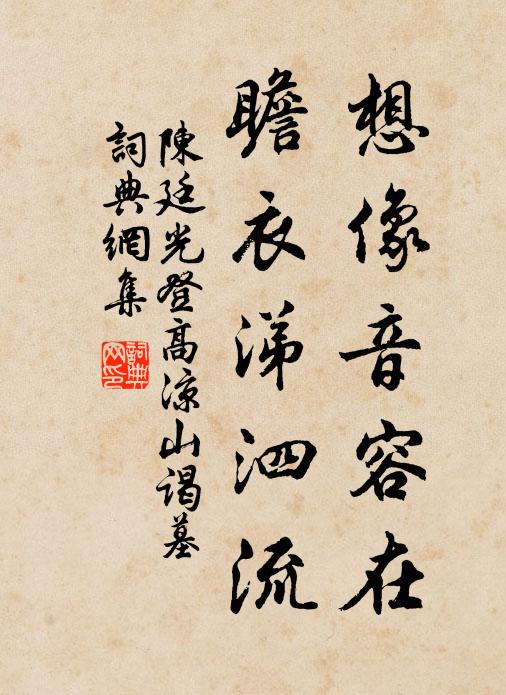 想像音容在
瞻衣涕泗流
陳廷光登高凉山謁墓
詞典網集
詞典网印